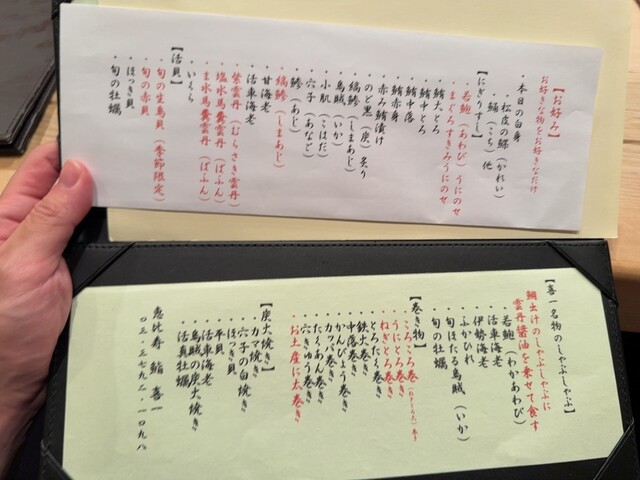 【お好み】
お好きな物をお好きなだけ
・本日の白身
・松皮の鰈（かれい）
・鯒（こち）他
【にぎりずし】
・若鮑（あわび）うにのせ
・まぐろすきみうにのせ
・鮪大とろ
・鮪中とろ
・鮪中落
・鮪赤身
・赤み鮪漬け
・のど黒（炭）炙り
・縞鯵（しまあじ）
・烏賊（いか）
・小肌（こはだ）
・穴子（あなご）
・鯵（あじ）
・縞鯵（しまあじ）
・甘海老
・活車海老
・紫雲丹（むらさき雲丹）
・塩水馬糞雲丹（ばふん）
・ま水馬糞雲丹（ばふん）
・いくら
【活貝】
・旬の生鳥貝（季節限定）
・旬の赤貝
・ほっき貝
・旬の牡蠣
【喜一名物のしゃぶしゃぶ】
鯛出汁のしゃぶしゃぶに
雲丹醤油を乗せて食す
・若鮑（わかあわび）
・活車海老
・伊勢海老
・ふかひれ
・旬ほたる烏賊（いか）
・旬の牡蠣
【巻き物】
・うにとろ巻き
・ねぎとろ巻き
・とろたく巻き
・鉄火巻き
・中落巻き
・かんぴょう巻き
・カッパ巻き
・たくあん巻き
・穴きゅう巻き
・お土産に太巻き
【炭火焼き】
・カマ焼き
・穴子の白焼き
・ほっき貝
・平貝
・活車海老
・烏賊の炭火焼き
・活真牡蠣
恵比寿 鮨 喜一
〇三-三七九二-一〇九八